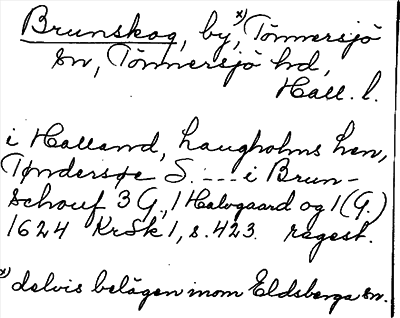 Brunskog, by,ˣ⁾ Tönnersjö
sn, Tönnersjö hd,
Hall. l.
i Halland, haugholms hen,
Tøndersøe S. --- i Brun-
schouf 3 G., 1 Halvgaard og 1 (G.)
1624 KrSk 1, s. 423. regest.
ˣ⁾ delvis belägen inom Eldsberga sn.